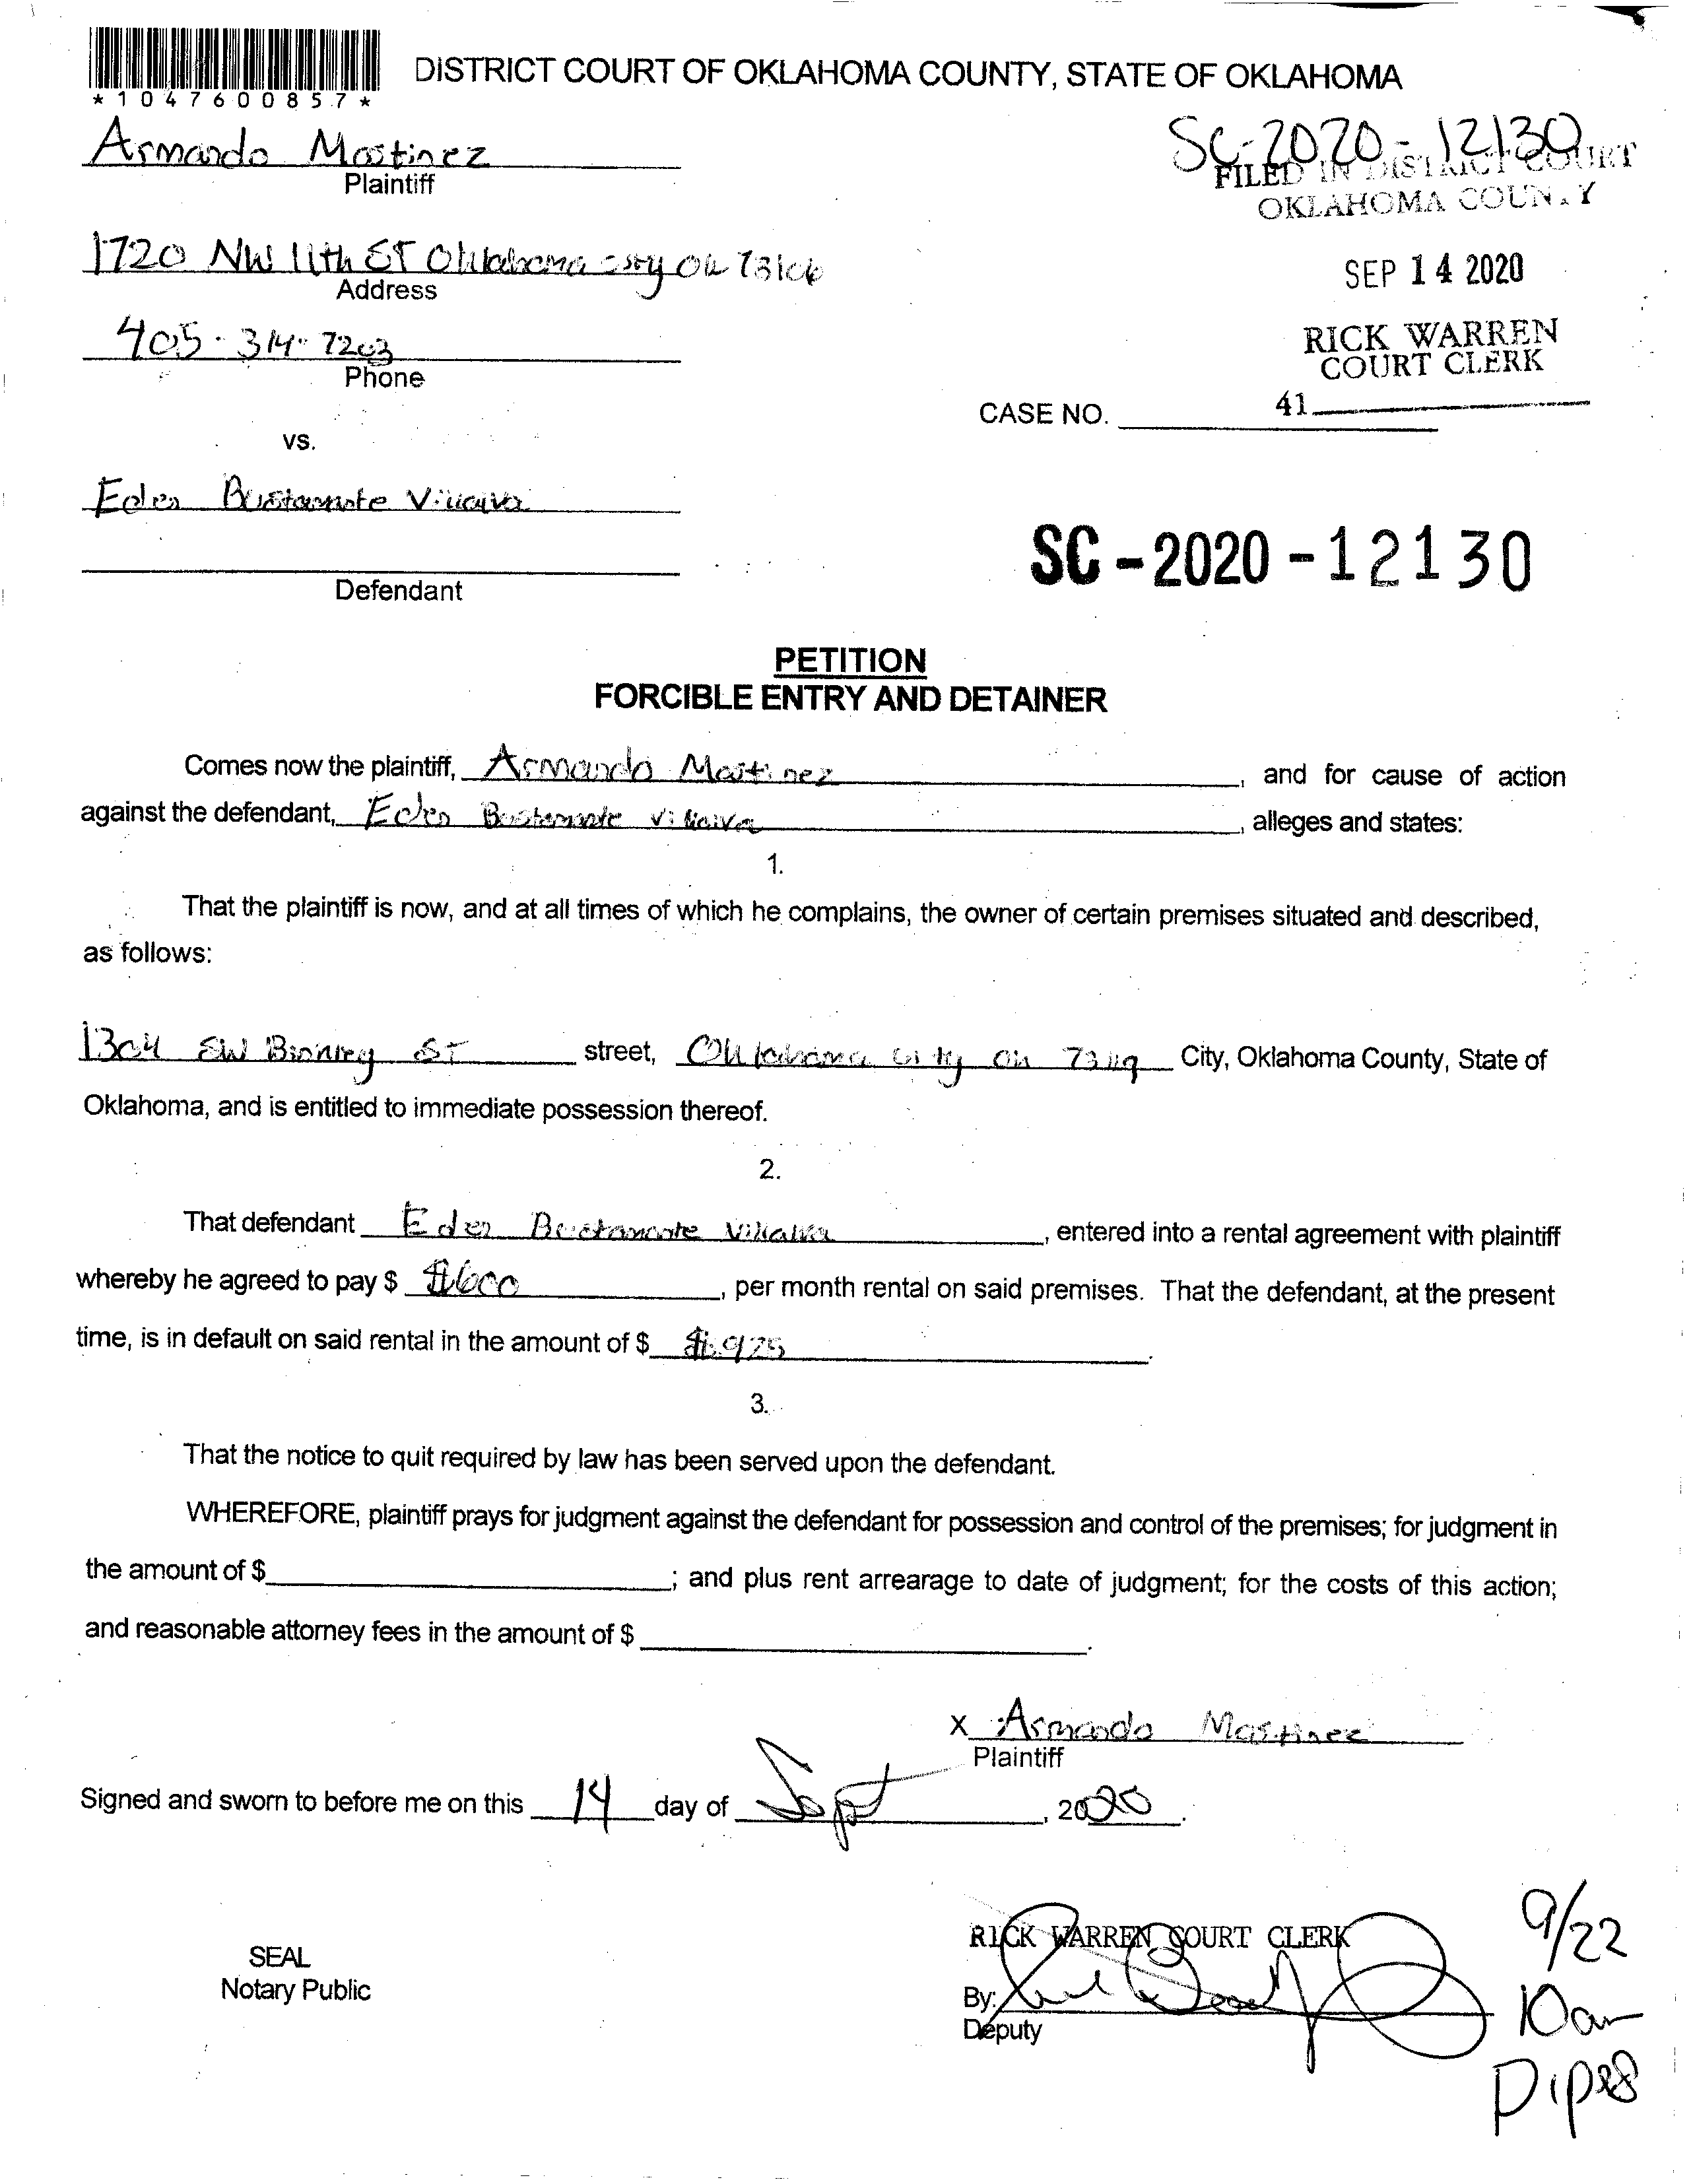 *1047600857*
DISTRICT COURT OF OKLAHOMA COUNTY, STATE OF OKLAHOMA
Armando Martinez
Plaintiff
SC-2020-12130
FILED IN DISTRICT COURT
OKLAHOMA COUNTY
1720 NW 11th ST Oklahoma City OK 73106
Address
SEP 14 2020
405-314-7203
Phone
RICK WARREN
COURT CLERK
CASE NO.
41
vs.
Eder Bustamante
Defendant
SC-2020-12130
PETITION
FORCIBLE ENTRY AND DETAINER
Comes now the plaintiff, Armando Martinez, and for cause of action
against the defendant, Eder Bustamante, alleges and states:
1.
That the plaintiff is now, and at all times of which he complains, the owner of certain premises situated and described,
as follows:
1304 SW Binkley ST street, Oklahoma City OK 73119 City, Oklahoma County, State of
Oklahoma, and is entitled to immediate possession thereof.
2.
That defendant Eder Bustamante, entered into a rental agreement with plaintiff
whereby he agreed to pay $ $600, per month rental on said premises. That the defendant, at the present
time, is in default on said rental in the amount of $
3.
That the notice to quit required by law has been served upon the defendant.
WHEREFORE, plaintiff prays for judgment against the defendant for possession and control of the premises; for judgment in
the amount of $ ; and plus rent arrearage to date of judgment; for the costs of this action;
and reasonable attorney fees in the amount of $ .
X Armando Martinez
Plaintiff
Signed and sworn to before me on this 14 day of Sept, 2020.
RICK WARREN COURT CLERK
SEAL
Notary Public
By:
Deputy
9/22
10am